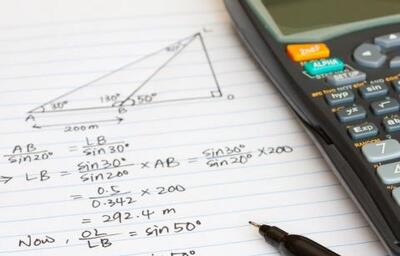 L
30° 130° 50°
A B O
200m
AB/sin20° = LB/sin30°
→ LB = sin30°/sin20° × AB = sin30°/sin20° × 200
= 0.5/0.342 × 200
= 292.4 m
Now, OL/LB = sin50°
sin50°
2nd F
ALPHA
SET UP
hyp sin
yˣ
Exp
7
4